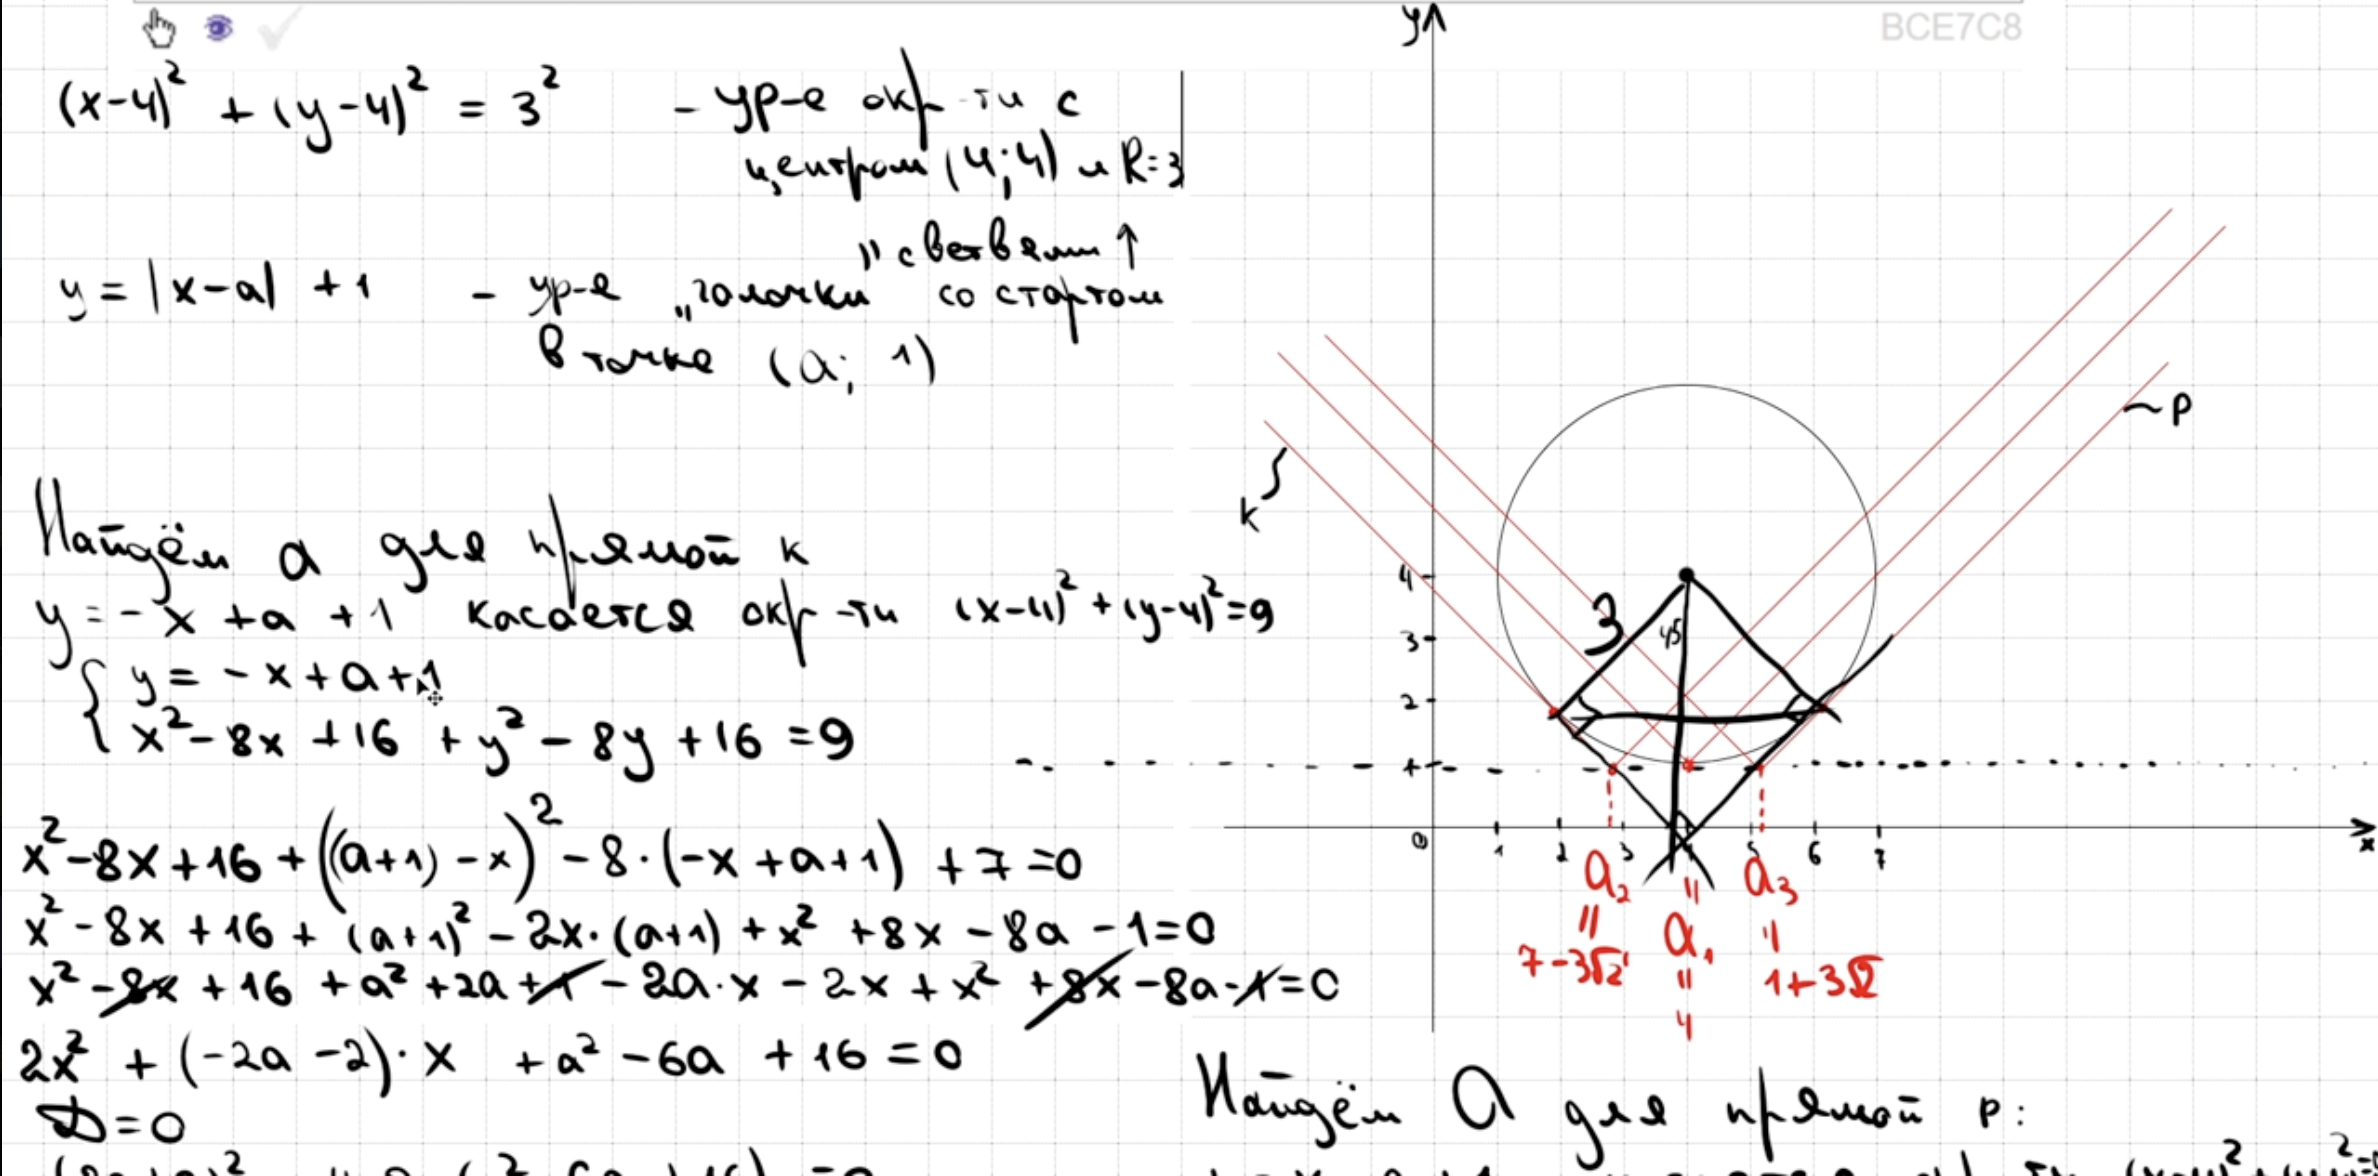 BCE7C8
(x-4)² + (y-4)² = 3² - ур-е окр-ти с
центром (4;4) и R=3
y = |x-a| + 1 - ур-е "галочки" с ветвями ↑
со стартом
в точке (a; 1)
Найдём a для прямой k
y = -x + a + 1 касается окр-ти (x-4)² + (y-4)² = 9
{ y = -x + a + 1
x² - 8x + 16 + y² - 8y + 16 = 9
x² - 8x + 16 + ((a+1) - x)² - 8·(-x + a + 1) + 7 = 0
x² - 8x + 16 + (a+1)² - 2x·(a+1) + x² + 8x - 8a - 1 = 0
x² - 8x + 16 + a² + 2a + 1 - 2a·x - 2x + x² + 8x - 8a - 1 = 0
2x² + (-2a - 2)·x + a² - 6a + 16 = 0
D = 0
y
~p
k
4
3
2
1
3
45
0 1 2 3 4 5 6 7 x
a₂ = 7 - 3√2
a₁ = 4
a₃ = 1 + 3√2
Найдём a для прямой p: